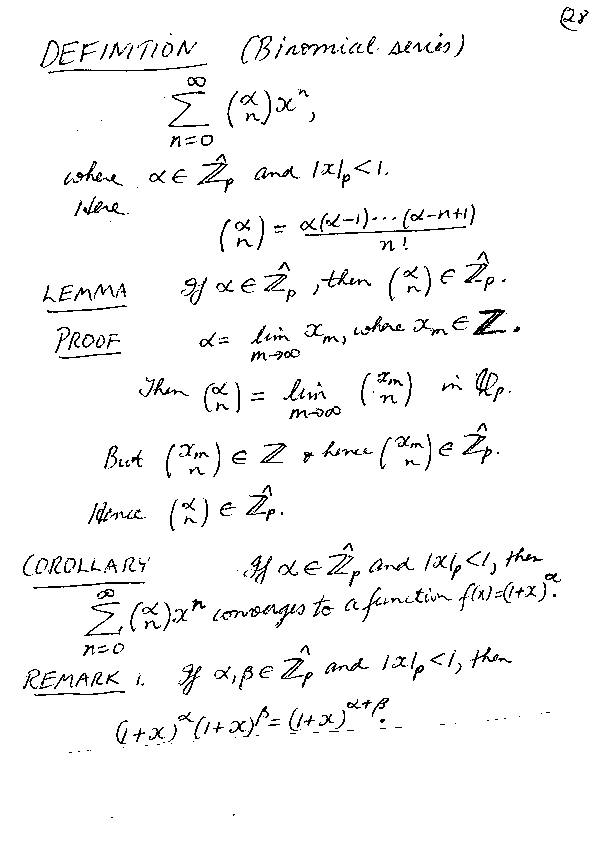 28
DEFINITION (Binomial series)
∞
∑ (α n) xⁿ,
n=0
where α ∈ Ẑ_p and |x|_p < 1.
Here
(α n) = α(α-1)⋯(α-n+1) / n!
LEMMA If α ∈ Ẑ_p, then (α n) ∈ Ẑ_p.
PROOF α = lim_{m→∞} x_m, where x_m ∈ ℤ.
Then (α n) = lim_{m→∞} (x_m n) in ℚ_p.
But (x_m n) ∈ ℤ & hence (x_m n) ∈ Ẑ_p.
Hence (α n) ∈ Ẑ_p.
COROLLARY If α ∈ Ẑ_p and |x|_p < 1, then
∞
∑ (α n) xⁿ converges to a function f(x) = (1+x)^α.
n=0
REMARK 1. If α, β ∈ Ẑ_p and |x|_p < 1, then
(1+x)^α (1+x)^β = (1+x)^{α+β}.